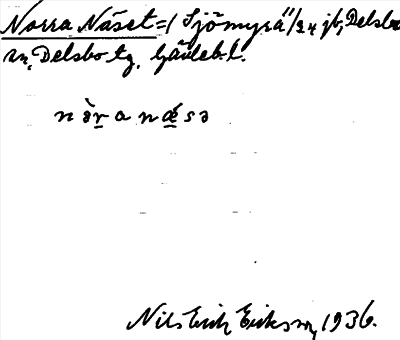 Norra Näset = 1 Sjömyra 11/24 jb, Delsbo
sn, Delsbo tg. Gävleb. l.
nə̀r̲a næ̲sə
Nils Erik Eriksson, 1936.